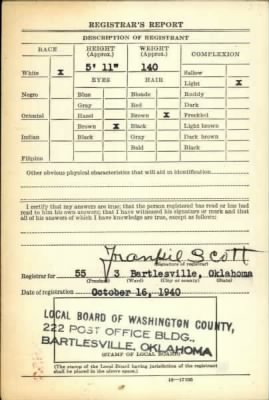 REGISTRAR'S REPORT
DESCRIPTION OF REGISTRANT
RACE HEIGHT (Approx.) WEIGHT (Approx.) COMPLEXION
White X 5' 11" 140 Sallow
EYES HAIR Light X
Negro Blue Blonde Ruddy
Gray Red Dark
Oriental Hazel Brown X Freckled
Brown X Black Light brown
Indian Black Gray Dark brown
Bald Black
Filipino
Other obvious physical characteristics that will aid in identification
I certify that my answers are true; that the person registered has read or has had
read to him his own answers; that I have witnessed his signature or mark and that
all of his answers of which I have knowledge are true, except as follows:
Scott
(Signature of registrar)
Registrar for 55 3 Bartlesville, Oklahoma
(Precinct) (Ward) (City or county) (State)
Date of registration October 16, 1940
LOCAL BOARD OF WASHINGTON COUNTY,
222 POST OFFICE BLDG.,
BARTLESVILLE, OKLAHOMA
(STAMP OF LOCAL BOARD)
(The stamp of the Local Board having jurisdiction of the registrant
shall be placed in the above space.)